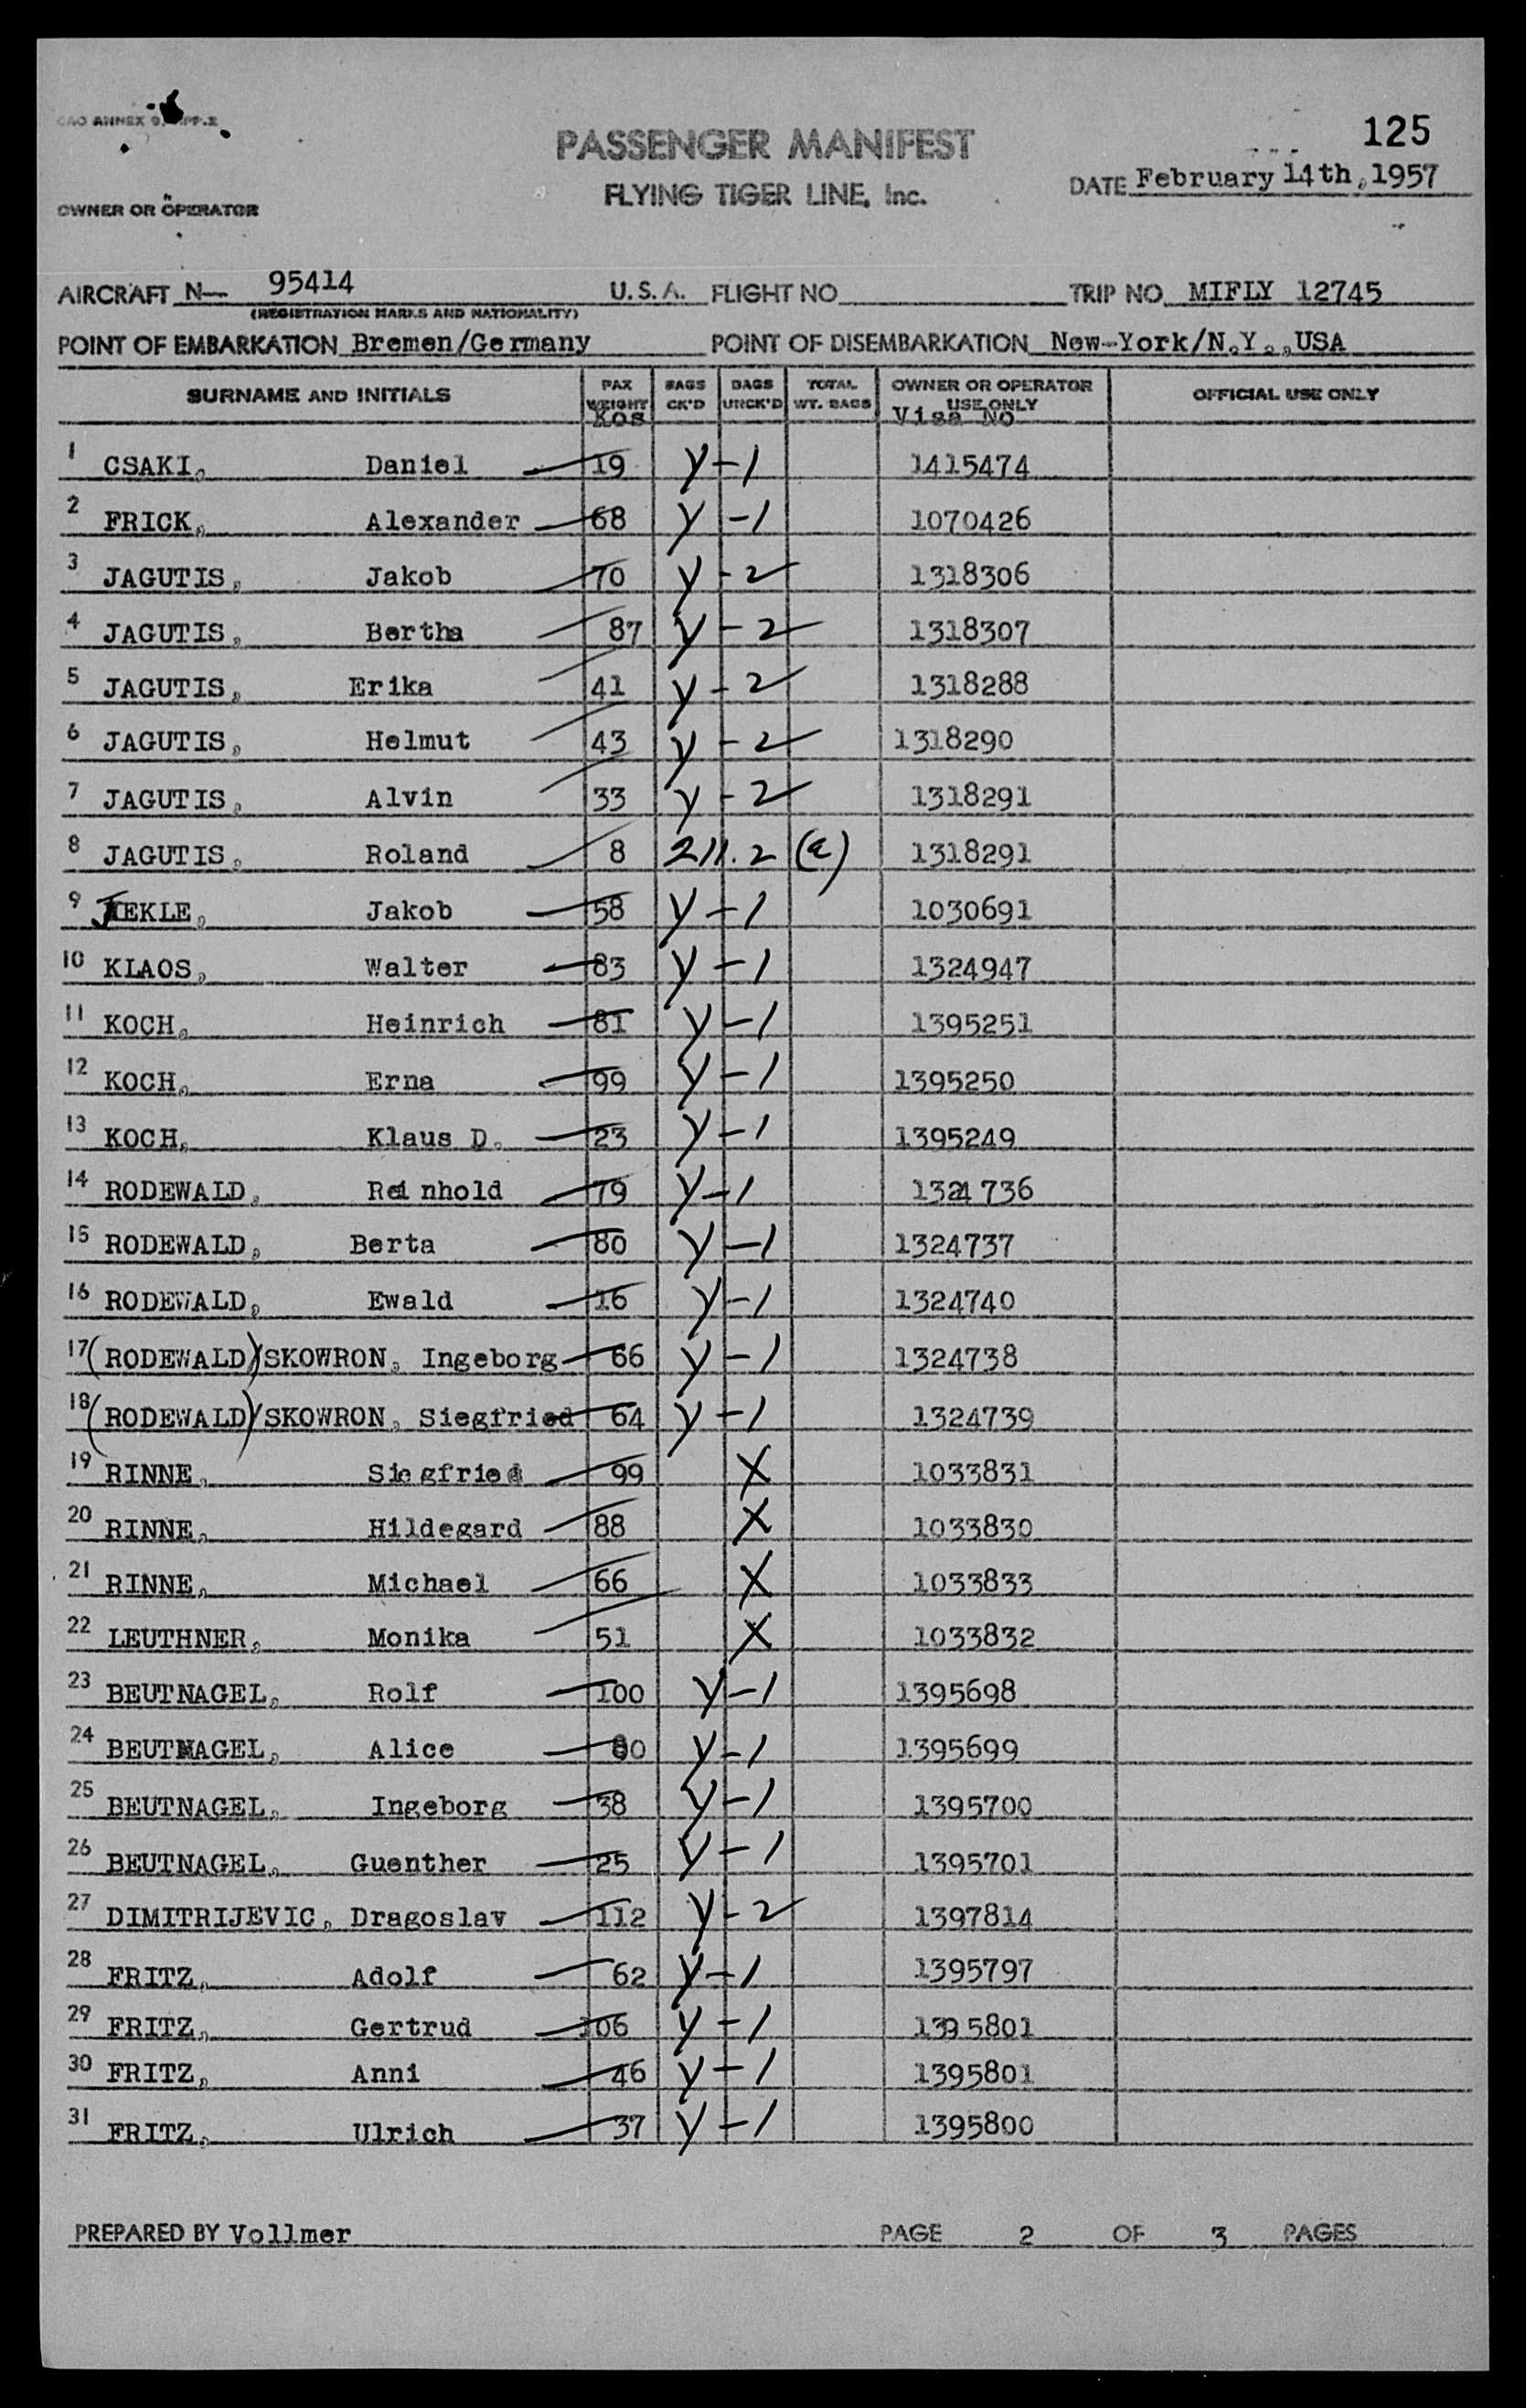 125
CAO ANNEX 9,
PASSENGER MANIFEST
DATE February 14th, 1957
FLYING TIGER LINE, Inc.
OWNER OR OPERATOR
AIRCRAFT N- 95414 U.S.A. FLIGHT NO TRIP NO MIFLY 12745
(REGISTRATION MARKS AND NATIONALITY)
POINT OF EMBARKATION Bremen/Germany POINT OF DISEMBARKATION New-York/N.Y., USA
SURNAME AND INITIALS PAX WEIGHT Kos BAGS CK'D BAGS UNCK'D TOTAL WT. BAGS OWNER OR OPERATOR USE ONLY Visa No OFFICIAL USE ONLY
1 CSAKI, Daniel 19 y-1 1415474
2 FRICK, Alexander 68 y-1 1070426
3 JAGUTIS, Jakob 70 y-2 1318306
4 JAGUTIS, Bertha 87 y-2 1318307
5 JAGUTIS, Erika 41 y-2 1318288
6 JAGUTIS, Helmut 43 y-2 1318290
7 JAGUTIS, Alvin 33 y-2 1318291
8 JAGUTIS, Roland 8 1318291
9 JEKLE, Jakob 58 y-1 1030691
10 KLAOS, Walter 83 y-1 1324947
11 KOCH, Heinrich 81 y-1 1395251
12 KOCH, Erna 99 y-1 1395250
13 KOCH, Klaus D. 23 y-1 1395249
14 RODEWALD, Reinhold 79 y-1 1324736
15 RODEWALD, Berta 80 y-1 1324737
16 RODEWALD, Ewald 16 y-1 1324740
17 (RODEWALD)/SKOWRON, Ingeborg 66 y-1 1324738
18 (RODEWALD)/SKOWRON, Siegfried 64 y-1 1324739
19 RINNE, Siegfried 99 X 1033831
20 RINNE, Hildegard 88 X 1033830
21 RINNE, Michael 66 X 1033833
22 LEUTHNER, Monika 51 X 1033832
23 BEUTNAGEL, Rolf 100 y-1 1395698
24 BEUTNAGEL, Alice 80 y-1 1395699
25 BEUTNAGEL, Ingeborg 38 y-1 1395700
26 BEUTNAGEL, Guenther 25 y-1 1395701
27 DIMITRIJEVIC, Dragoslav 112 y-2 1397814
28 FRITZ, Adolf 62 y-1 1395797
29 FRITZ, Gertrud 106 y-1 1395801
30 FRITZ, Anni 46 y-1 1395801
31 FRITZ, Ulrich 37 y-1 1395800
PREPARED BY Vollmer PAGE 2 OF 3 PAGES